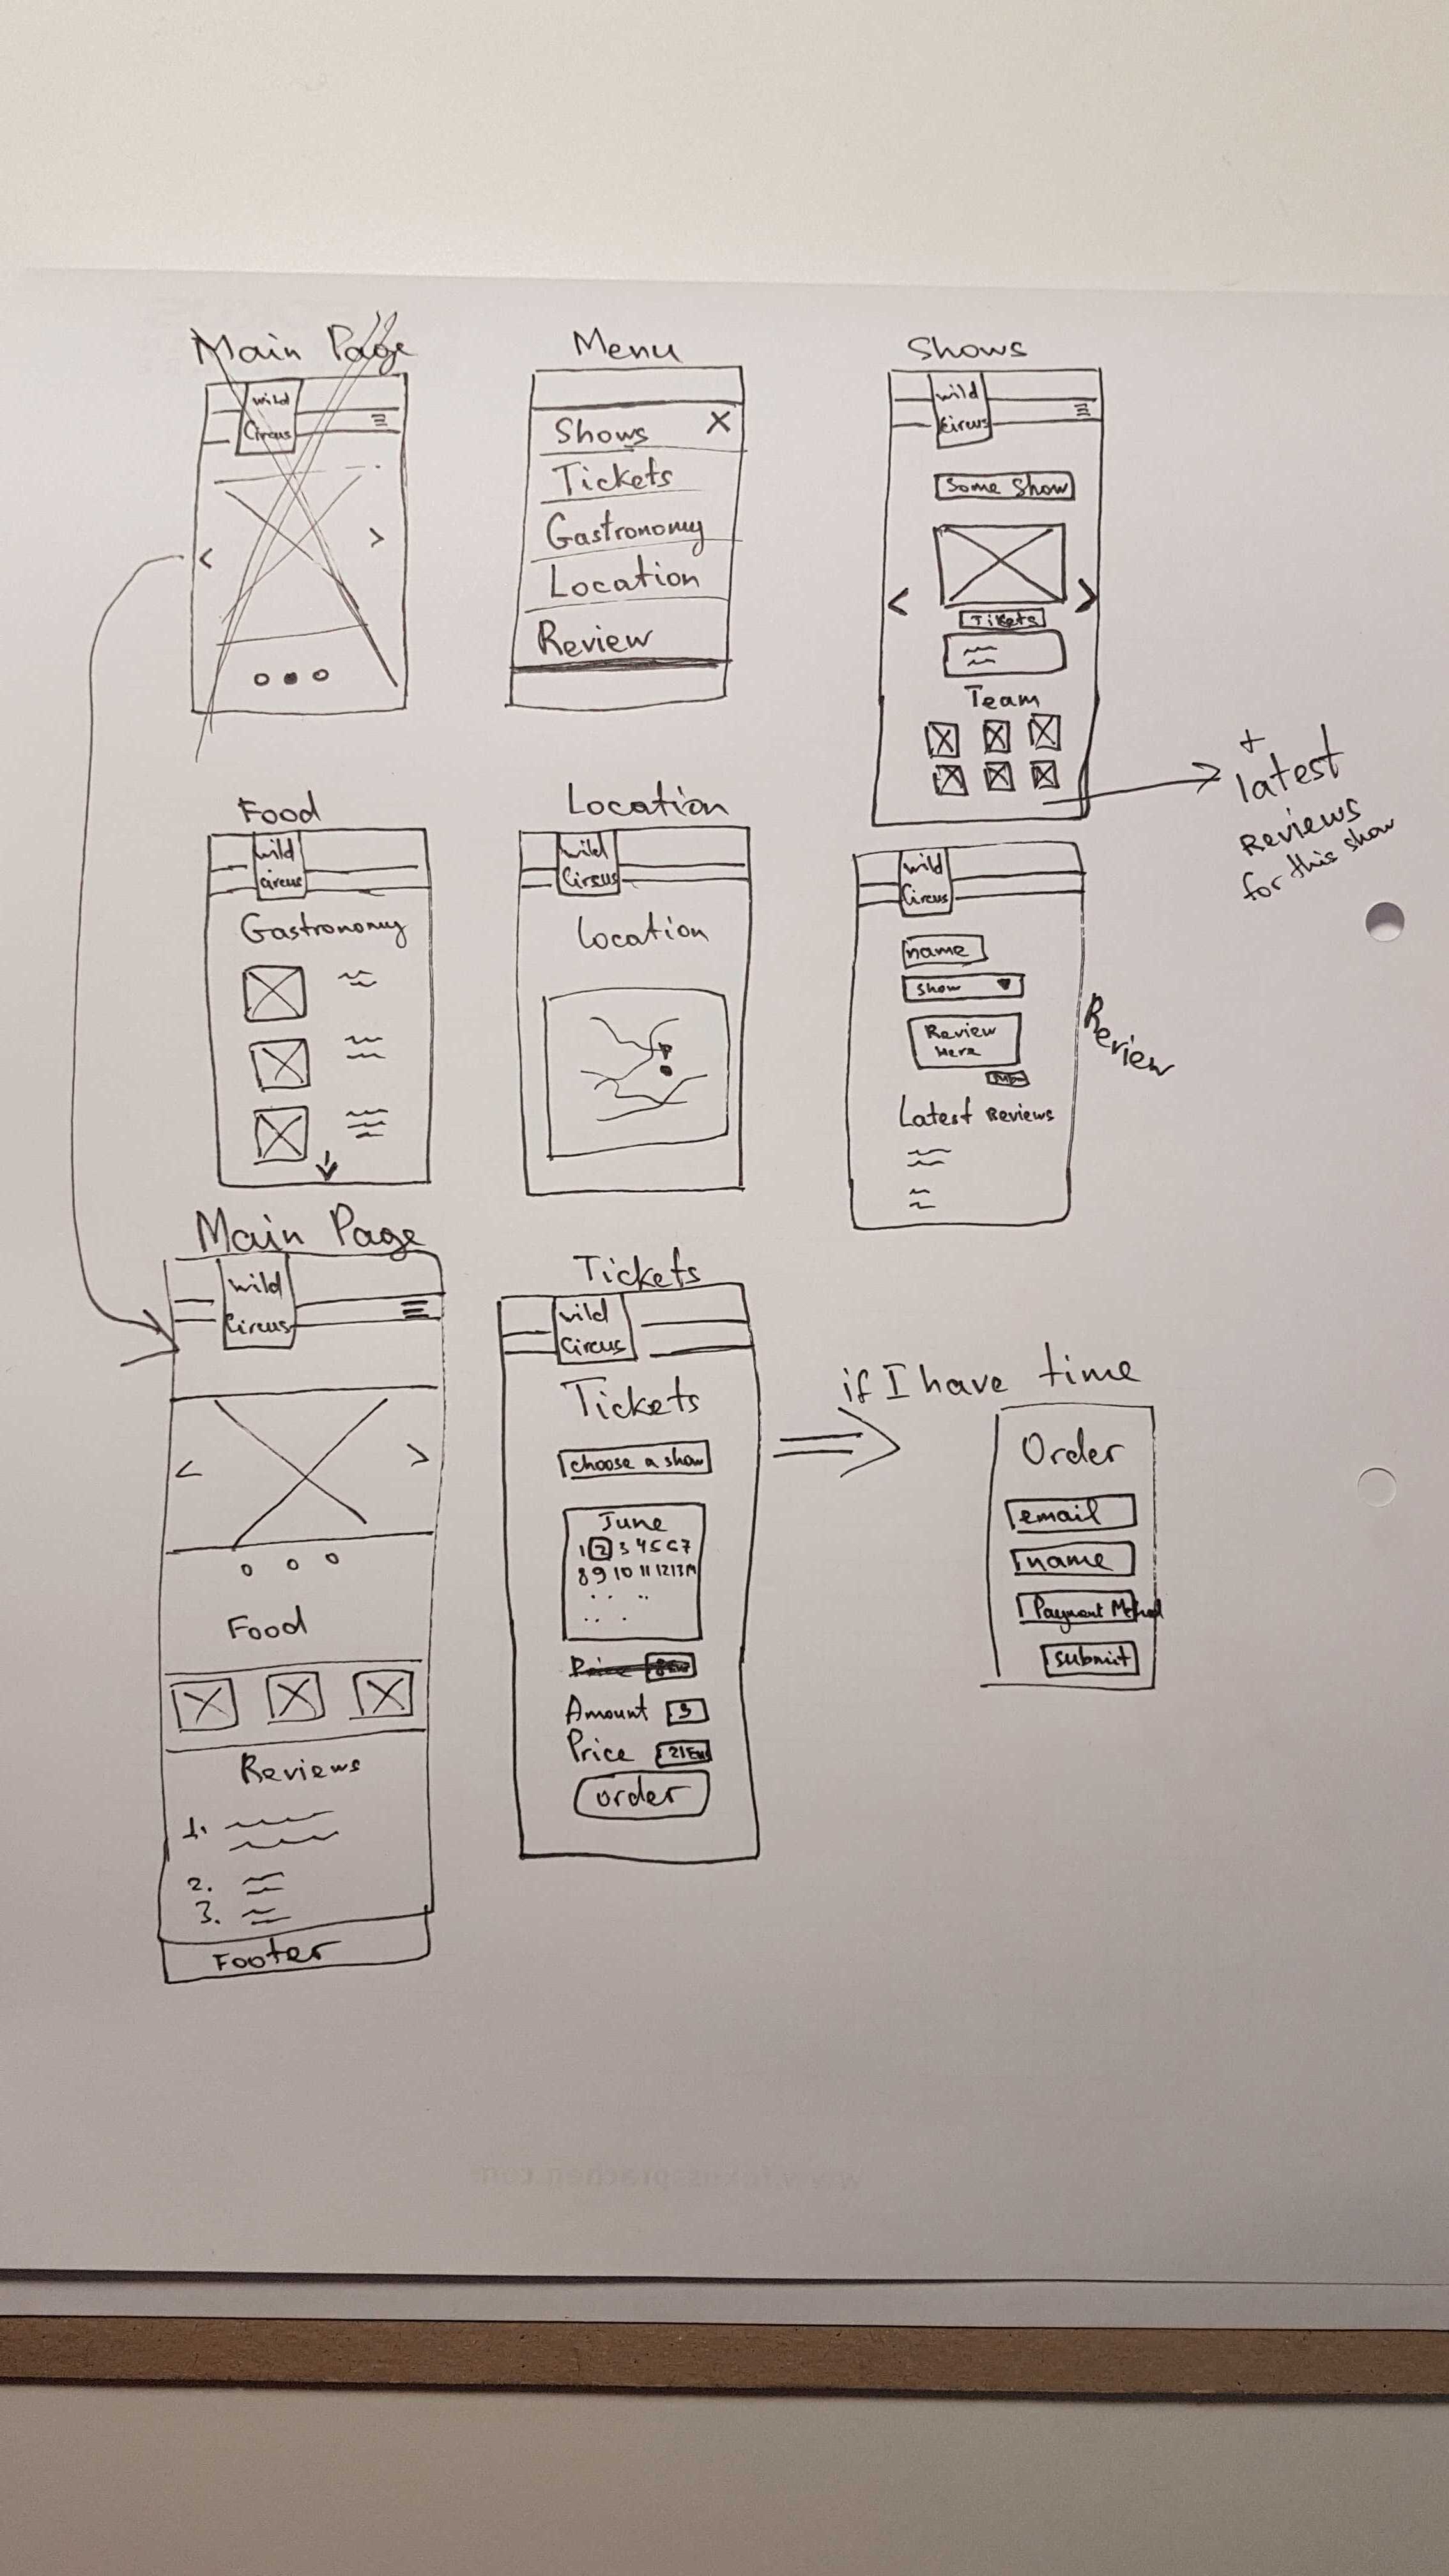 Main Page
wild
Circus
Menu
Shows X
Tickets
Gastronomy
Location
Review
Shows
wild
Circus
Some Show
Tikets
Team
+
latest
Reviews
for this show
Food
wild
circus
Gastronomy
Location
wild
Circus
Location
wild
Circus
name
show
Review
Here
Latest Reviews
Review
Main Page
wild
Circus
Food
Reviews
1.
2.
3.
Footer
Tickets
wild
Circus
Tickets
choose a show
June
1 2 3 4 5 6 7
8 9 10 11 12 13 14
Price
Amount 3
Price 21 Eur
order
if I have time
Order
email
name
Payment Method
submit
www.fokussprachen.com